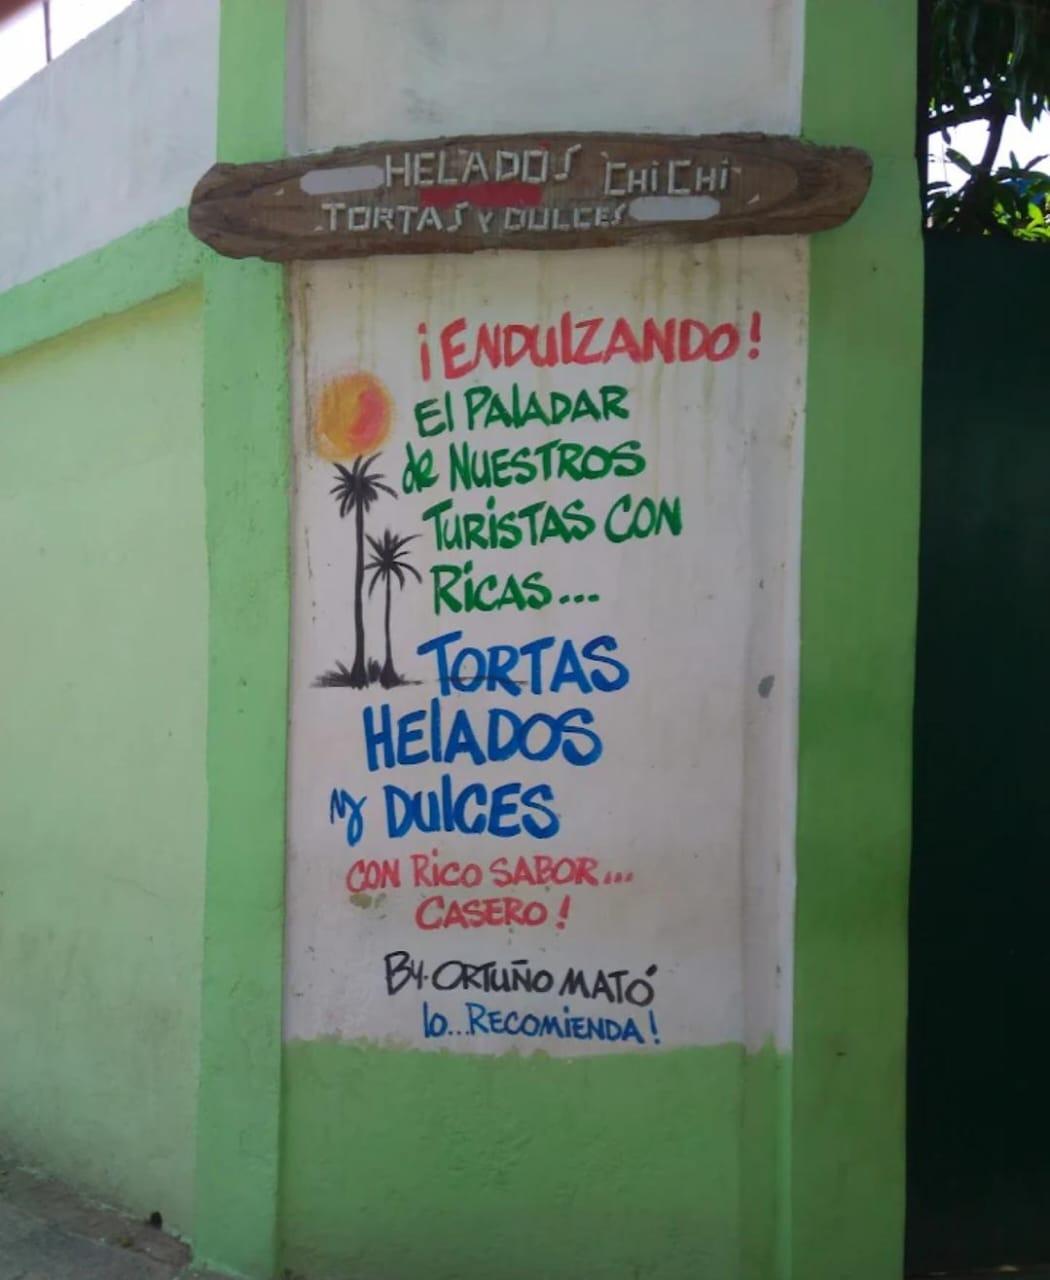 HELADOS CHiCHi
TORTAS Y DULCES
¡ENDUlZANDO!
El PAlADAR
de NUESTROS
TURiSTAS CON
RiCAS...
TORTAS
HElADOS
y DUlCES
CON RiCO SABOR...
CASERO!
By. ORTUÑO MATÓ
lo...RECOMIENDA!